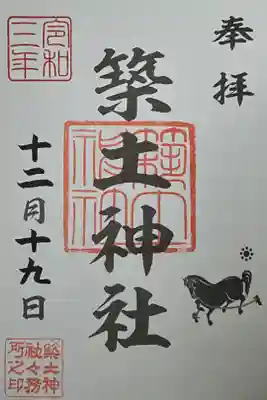 奉拝
築土神社
令和
三年
十二月十九日
築土
神社
築土神
社々務
所之印